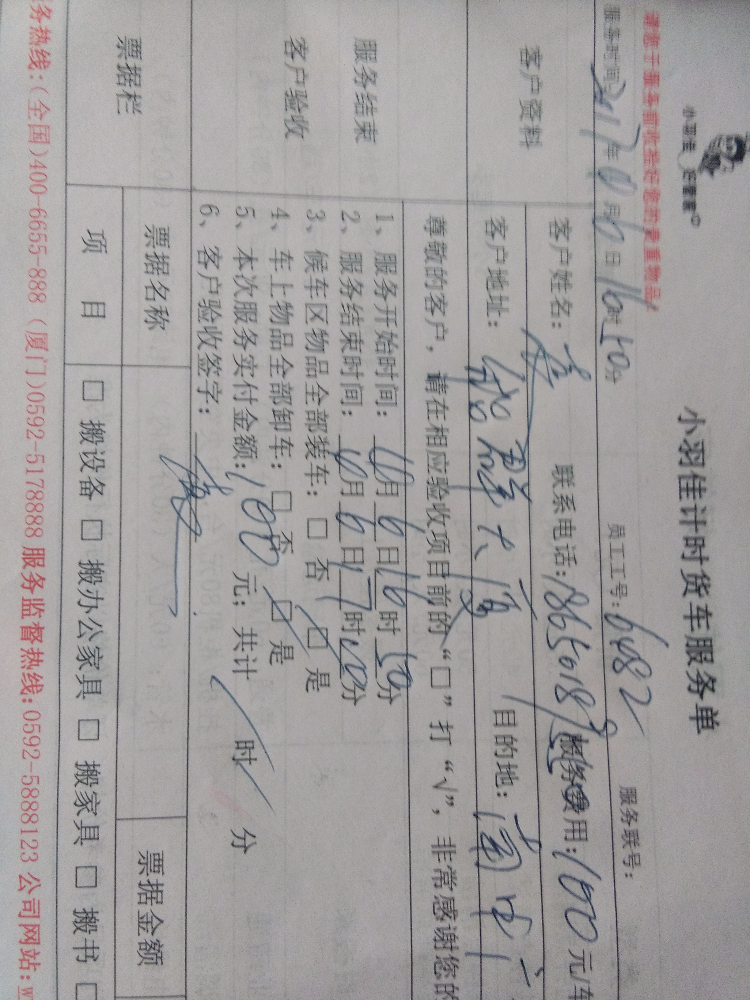 小羽佳计时货车服务单
小羽佳 好管家
请您于服务前收捡好您的贵重物品!
员工工号: 6482 服务联号:
服务时间 2017年 月6日16时50分
客户资料
客户姓名: 联系电话: 服务费用:100元/车
客户地址: 目的地:
尊敬的客户,请在相应验收项目前的“□”打“√”,非常感谢您的
服务结束
客户验收
1、服务开始时间: 月6日16时50分
2、服务结束时间: 月6日17时 分
3、候车区物品全部装车:□ 否 □ 是
4、车上物品全部卸车:□ 否 □ 是
5、本次服务实付金额:100元;共计 / 时 / 分
6、客户验收签字:
票据栏 票据名称 票据金额
项 目 □ 搬设备 □ 搬办公家具 □ 搬家具 □ 搬书 □
务热线:(全国)400-6655-888 (厦门)0592-5178888 服务监督热线:0592-5888123 公司网站:w